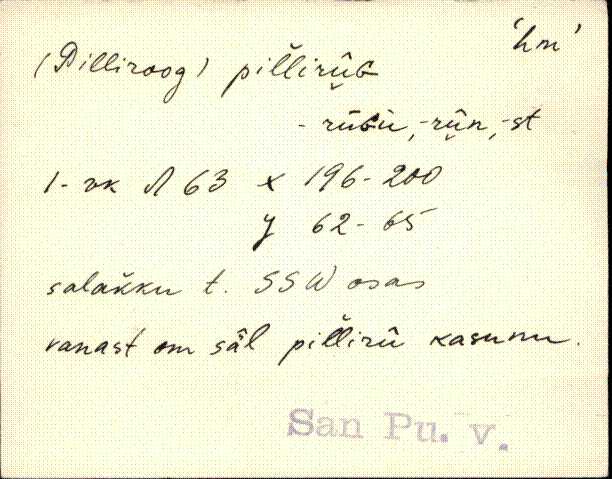 'hm'
(Pilliroog) pillirûG
- rûGù, -rûn, -st
1- vk Л 63 x 196-200
y 62-65
salakku t. SSW osas
vanast om sâl pillirû kasunu.
San Pu. v.